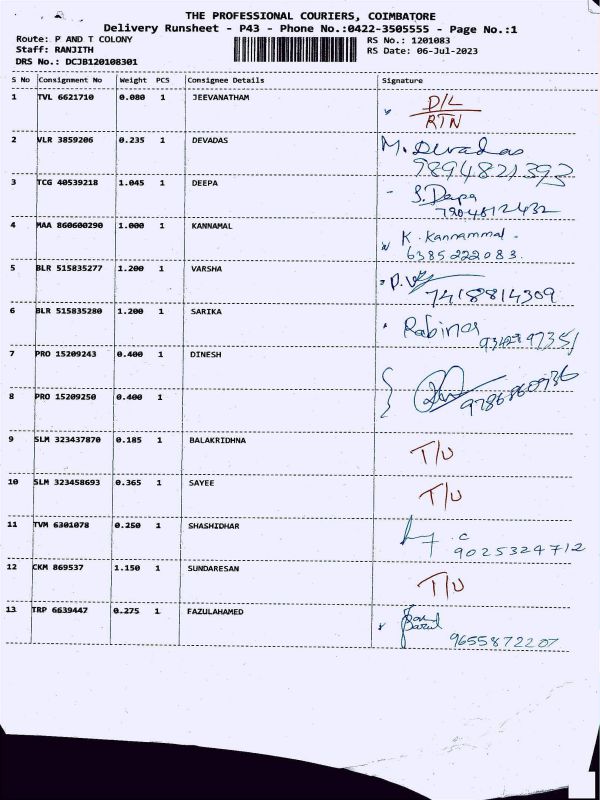 THE PROFESSIONAL COURIERS, COIMBATORE
Delivery Runsheet - P43 - Phone No.:0422-3505555 - Page No.:1
Route: P AND T COLONY RS No.: 1201083
Staff: RANJITH RS Date: 06-Jul-2023
DRS No.: DCJB120108301
S No Consignment No Weight PCS Consignee Details Signature
1 TVL 6621710 0.080 1 JEEVANATHAM D/L
RTN
2 VLR 3859206 0.235 1 DEVADAS M. Devadas
9894821393
3 TCG 40539218 1.045 1 DEEPA S. Depa
7904812432
4 MAA 860600290 1.000 1 KANNAMAL K. Kannammal
6385222083.
5 BLR 515835277 1.200 1 VARSHA
7418814309
6 BLR 515835280 1.200 1 SARIKA
7 PRO 15209243 0.400 1 DINESH
8 PRO 15209250 0.400 1
9 SLM 323437870 0.185 1 BALAKRIDHNA T/U
10 SLM 323458693 0.365 1 SAYEE T/U
11 TVM 6301078 0.250 1 SHASHIDHAR
9025324712
12 CKM 869537 1.150 1 SUNDARESAN T/U
13 TRP 6639447 0.275 1 FAZULAHAMED
9655872207